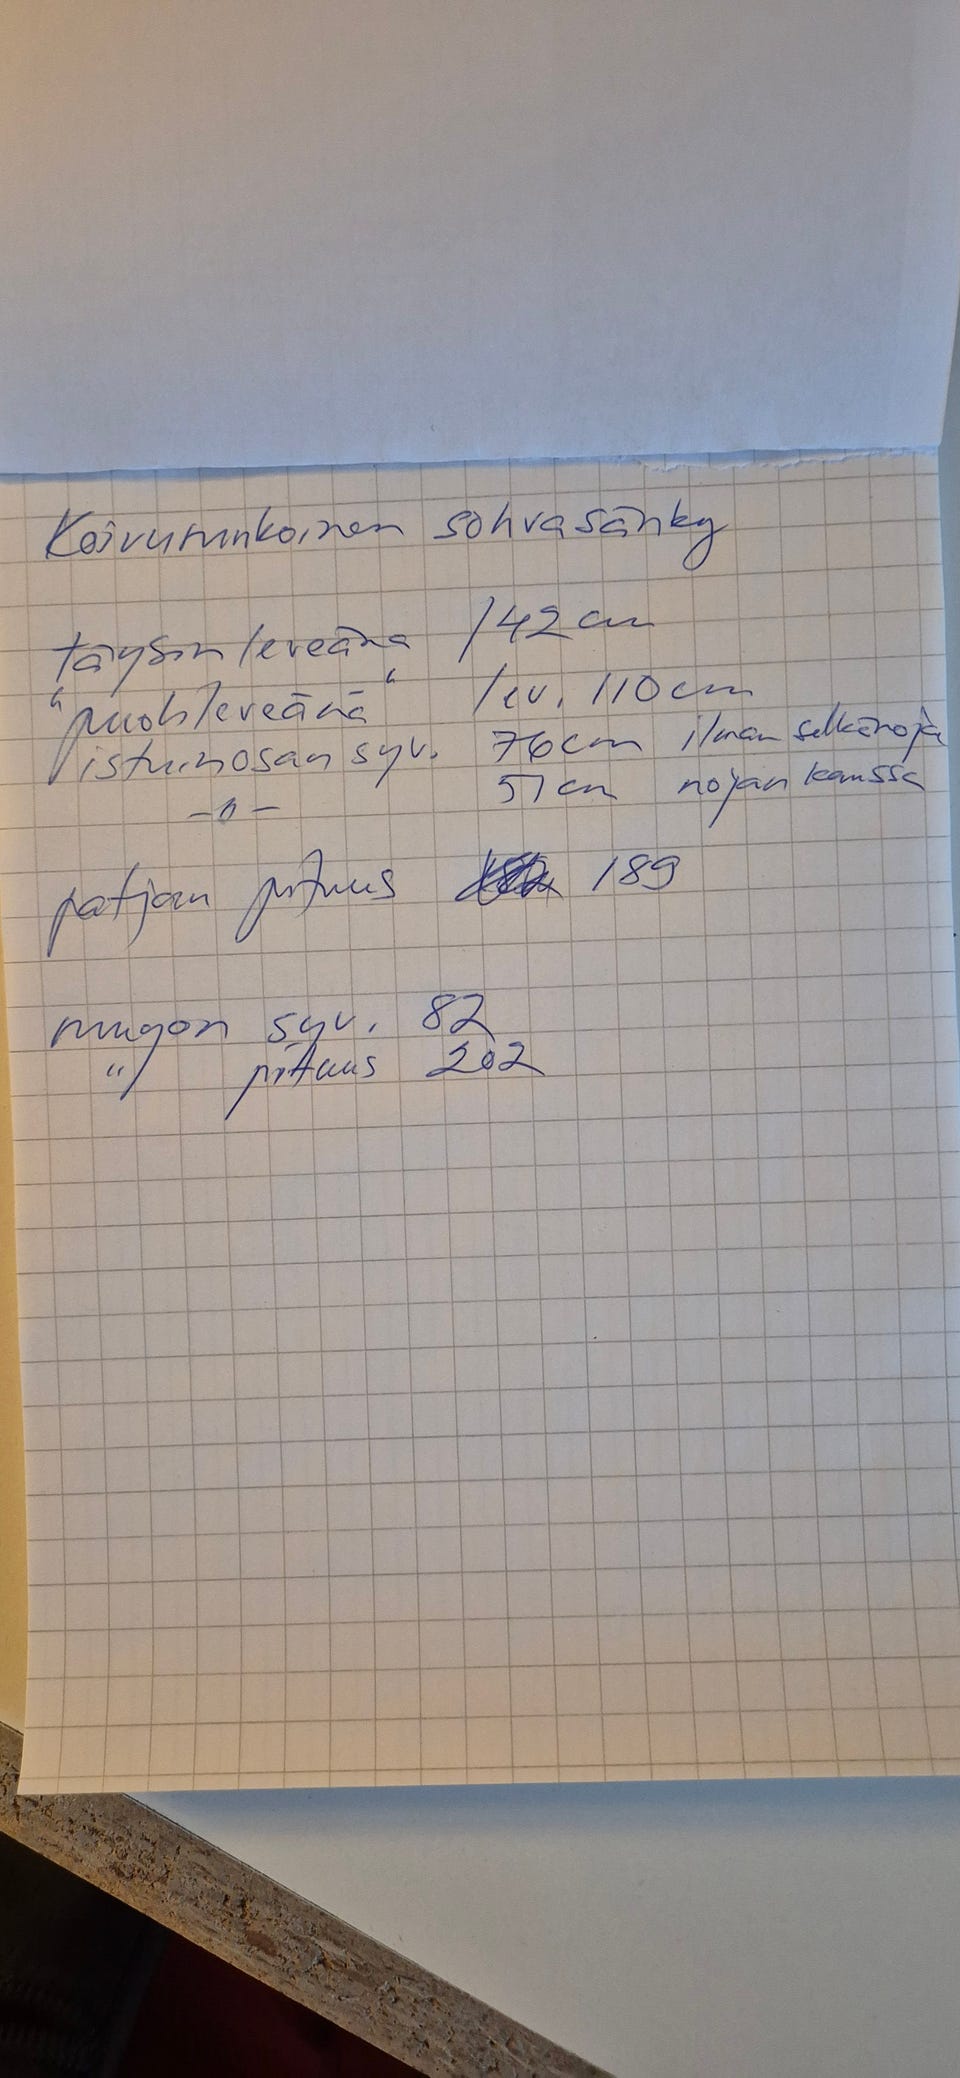 Koivurunkoinen sohvasänky
täysin leveänä 142 cm
"puolileveänä" lev. 110 cm
istuinosan syv. 76 cm ilman selkänoja
-"- 51 cm nojan kanssa
patjan pituus 189
rungon syv. 82
" pituus 202